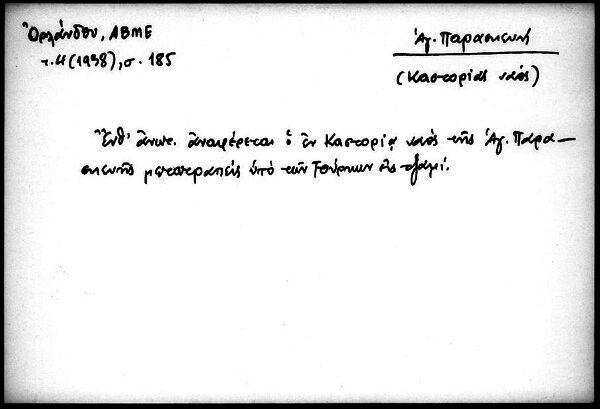 Ὀρλάνδου, ΑΒΜΕ
τ. Δ (1938), σ. 185
Ἁγ. Παρασκευή
(Καστοριᾶς ναός)
Ἔνθ' ἄνωτ. ἀναφέρεται ὁ ἐν Καστορίᾳ ναός τῆς Ἁγ. Παρα-
σκευῆς μετατραπείς ὑπό τῶν Τούρκων εἰς τζαμί.